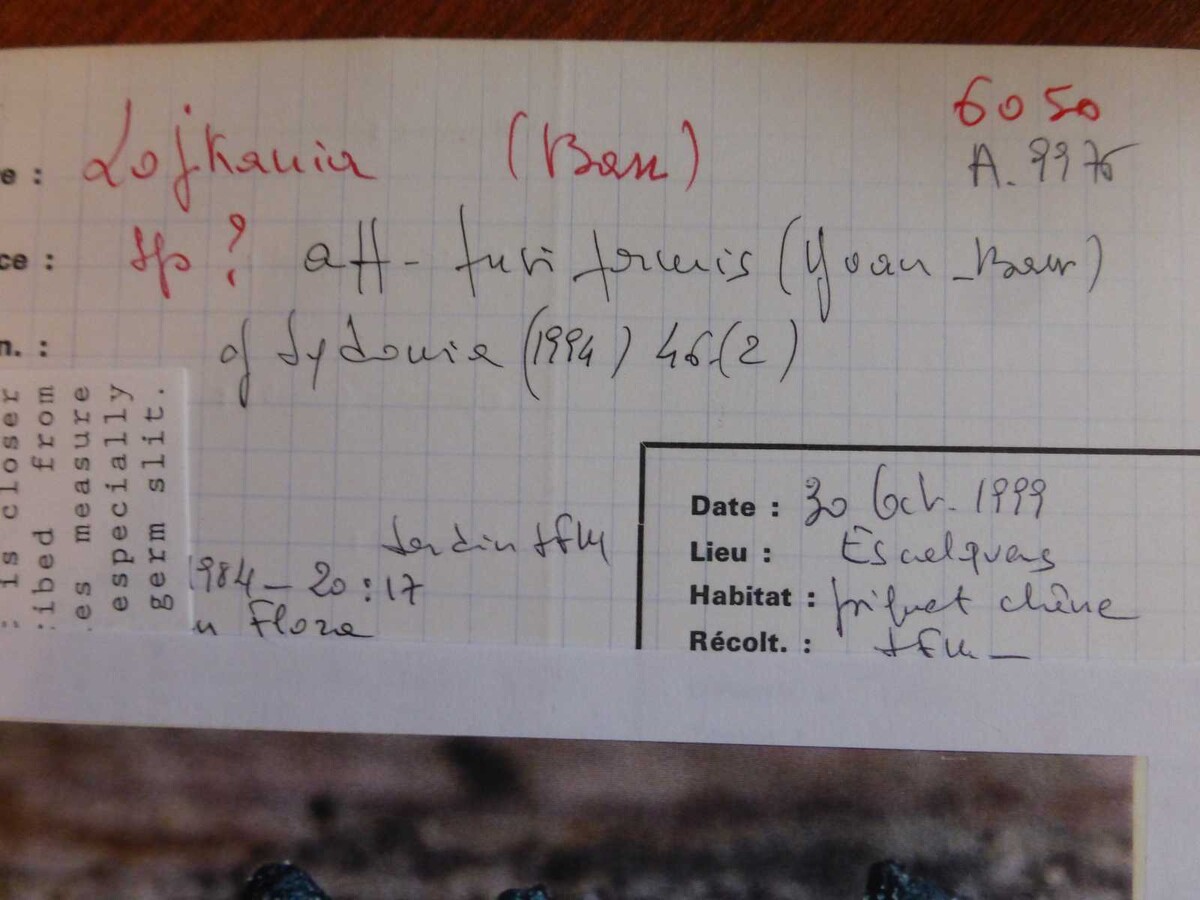 6050
e : Lojkania (Barr)
A. 9976
ce : sp ? aff - fusiformis (Yuan - Barr)
n. : cf Sydowia (1994) 46(2)
: is closer
ibed from
es measure
especially
germ slit.
Jardin JFM
1984 - 20 : 17
Flora
Date : 30 Oct. 1999
Lieu : Escalquens
Habitat : piquet chêne
Récolt. : JFM -